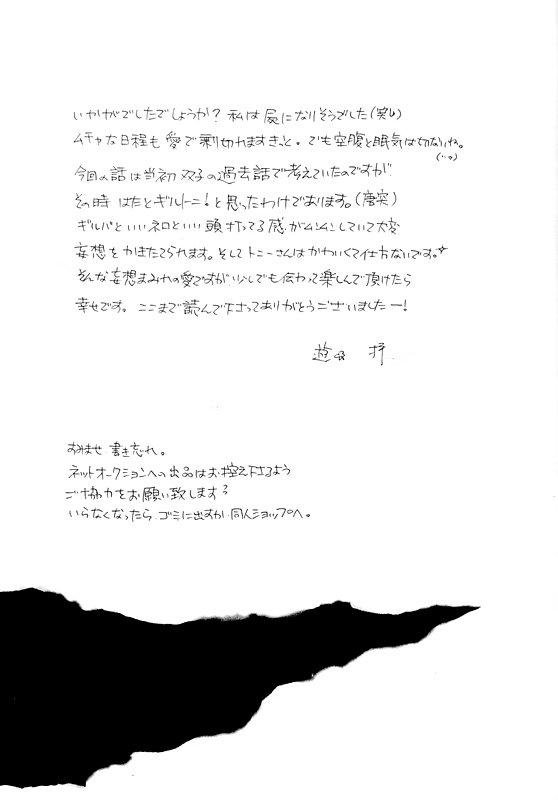 いかがでしたでしょうか？私は屍になりそうでした(笑)
ムチャな日程も愛で乗り切れますきっと。でも空腹と眠気は切ないね。
今回の話は当初双子の過去話で考えていたのですが
その時はたとギルトニ！と思ったわけであります。(唐突)
ギルバといいネロといい頭打ってる感がムンムンしていて大変
妄想をかきたてられます。そしてトニーさんはかわいくて仕方ないです。
そんな妄想まみれの愛ですが少しでも伝わって楽しんで頂けたら
幸せです。ここまで読んで下さってありがとうございましたー！
すみませ 書き忘れ。
ネットオークションへの出品はお控え下さるよう
ご協力をお願い致します
いらなくなったら、ゴミに出すか同人ショップへ。